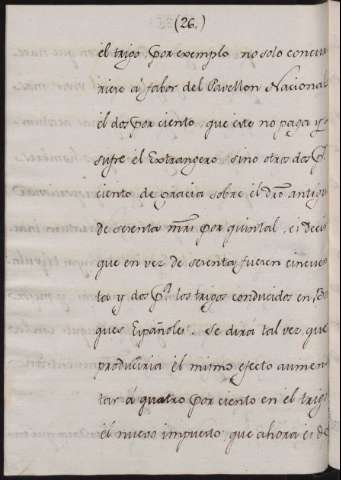 (26.)
el trigo, por exemplo no solo concur
riere á fabor del Pavellon Nacional
el dos por ciento que este no paga y
sufre el Extrangero sino otro dos p.r
ciento de gracia sobre el dro antiguo
de sesenta mrs por quintal, es decir
que en vez de sesenta fuesen cincuen
ta y dos p.a los trigos conducidos en Bu
ques Españoles. Se dirá tal vez que
produciria el mismo efecto aumen
tar á quatro por ciento en el trigo
el nuevo impuesto que ahora es de